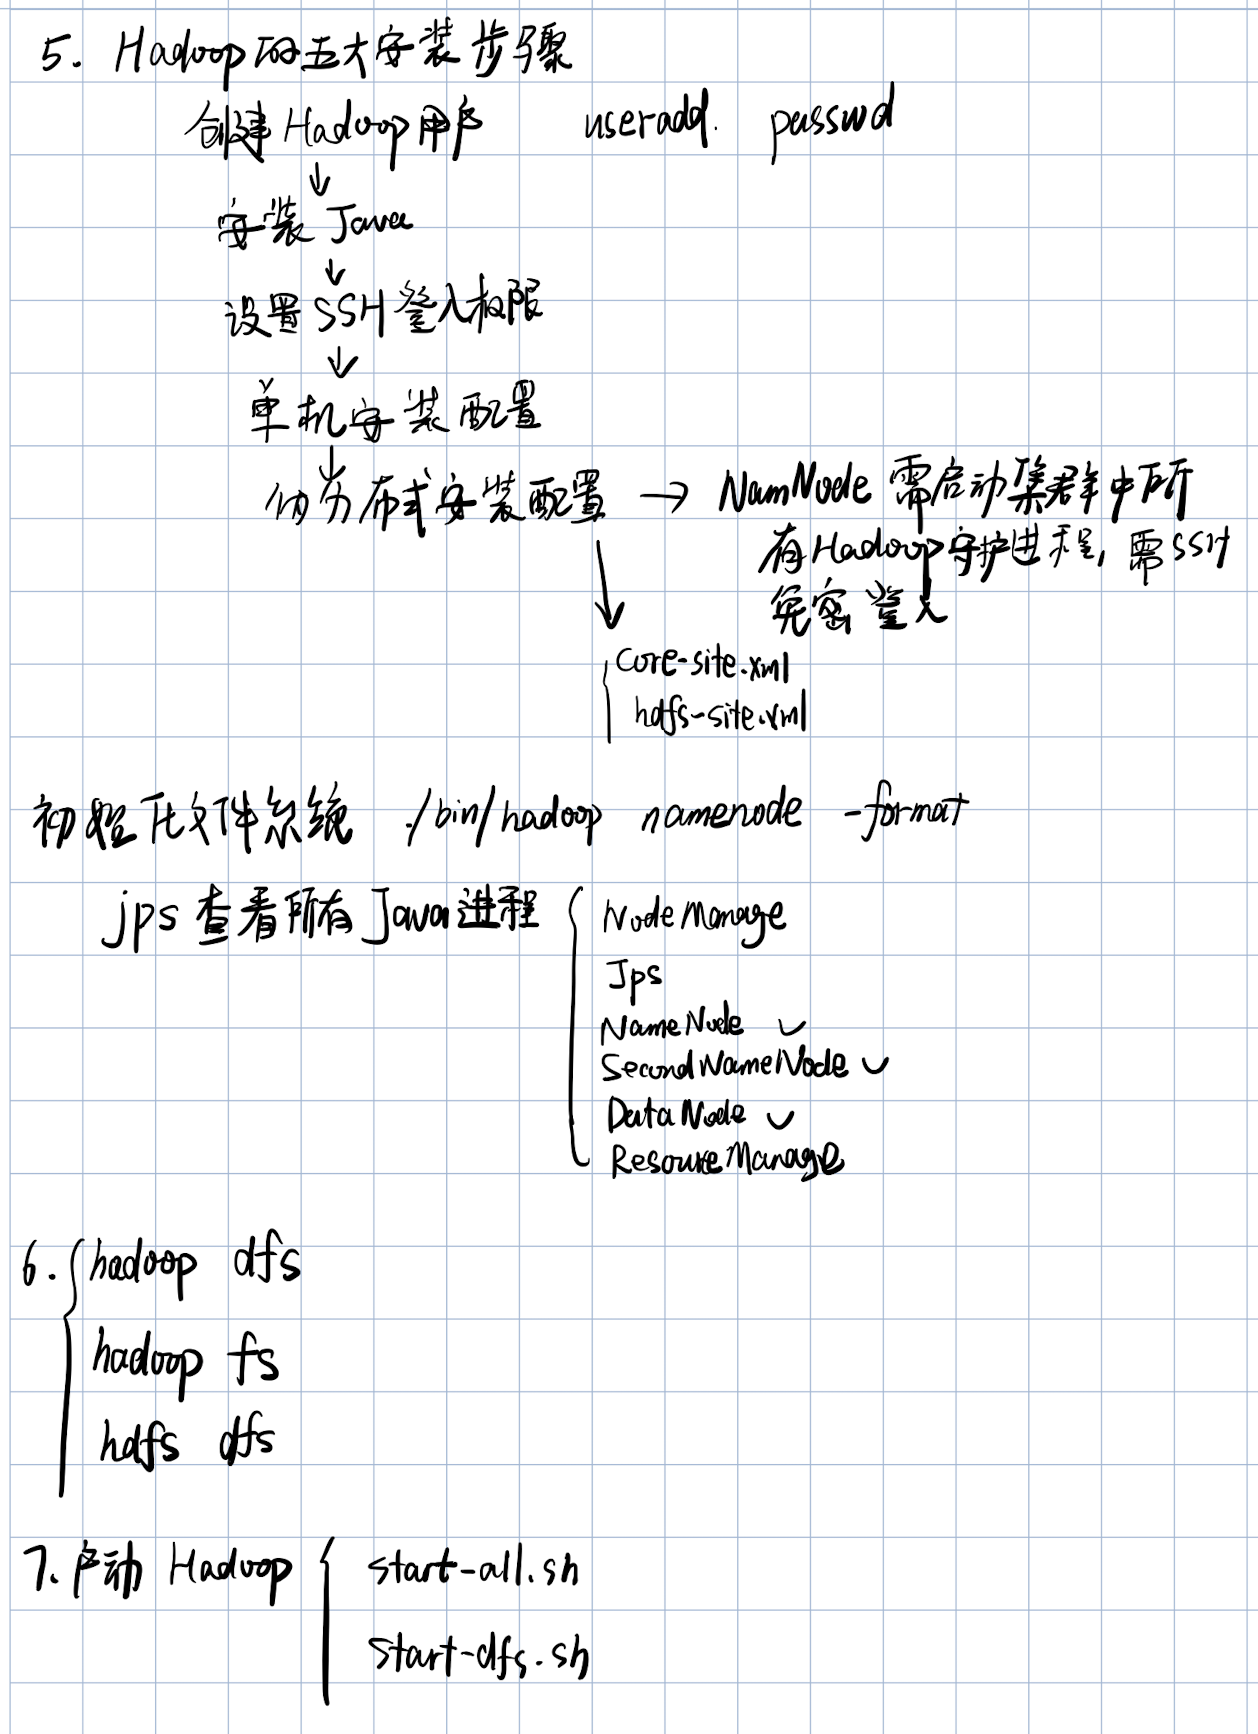 5. Hadoop的五大安装步骤
创建Hadoop用户 useradd. passwd
↓
安装Java
↓
设置SSH登入权限
↓
单机安装配置
↓
伪分布式安装配置 → NamNode需启动集群中所
有Hadoop守护进程, 需SSH
免密登入
core-site.xml
hdfs-site.xml
初始化文件系统 ./bin/hadoop namenode -format
jps查看所有Java进程
NodeManage
Jps
NameNode ✓
SecondNameNode ✓
DataNode ✓
ResourceManage
6. hadoop dfs
hadoop fs
hdfs dfs
7. 启动 Hadoop
start-all.sh
start-dfs.sh